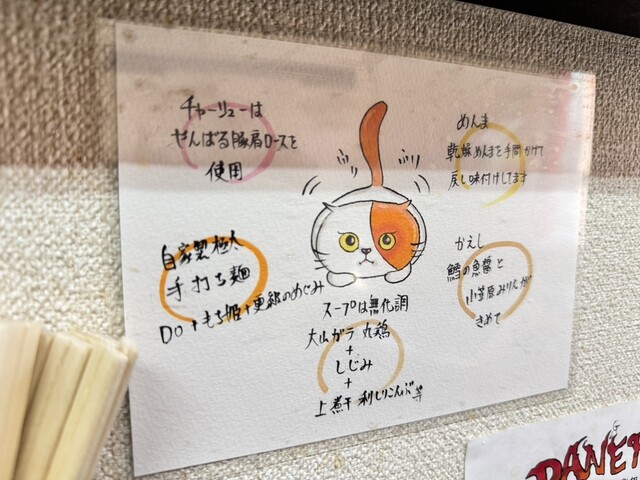 チャーシューは
やんばる豚肩ロースを
使用
めんま
乾燥めんまを手間かけて
戻し味付けしてます
自家製極太
手打ち麺
DO+もち姫+更級のめぐみ
かえし
鱈の魚醤と
小笠原みりんが
きめて
スープは無化調
大山ガラ 丸鶏
+
しじみ
+
上煮干 利しりこんぶ等